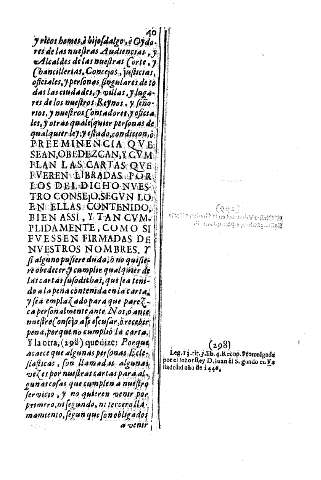 40
y ricos homes, ò hijosdalgo, ò Oydo-
res de las nuestras Audiencias, y
Alcaldes de las nuestras Corte, y
Chancillerias, Concejos, justicias,
oficiales, y personas singulares de to
das las ciudades, y villas, y lugares
de los nuestros Reynos, y seño-
rios, y nuestros Contadores, y oficia
les, y otras qualesquier personas de
qualquier ley, y estado, condicion, ò
PREEMINENCIA QVE
SEAN, OBEDEZCAN, Y CVM
PLAN LAS CARTAS QVE
FVEREN LIBRADAS POR
LOS DEL DICHO NVES-
TRO CONSEJO, SEGVN LO
EN ELLAS CONTENIDO,
BIEN ASSI, Y TAN CVM-
PLIDAMENTE, COMO SI
FVESSEN FIRMADAS DE
NVESTROS NOMBRES. Y
si alguno pusiere duda, ò no quisie-
re obedecer, y cumplir qualquier de
las cartas susodichas, que sea teni-
do a la pena contenida en la carta,
y sea emplazado para que parez-
ca personalmente ante Nos, ò ante
nuestro Consejo a se escusar, ò recebir
pena, porque no cumpliò la carta.
Y la otra, (298) que dize: Porque
acaece que algunas personas Ecle-
siasticas, son llamadas algunas
vezes por nuestras cartas para al-
gunas cosas que cumplen a nuestro
servicio, y no quieren venir por
primero, ni segundo, ni tercero lla-
mamiento, segun que son obligados
a venir
(298)
Leg. 15. tit. 3. lib. 4. Recop. Promulgada
por el señor Rey D. Iuan el Segundo en Va
lladolid año de 1440.